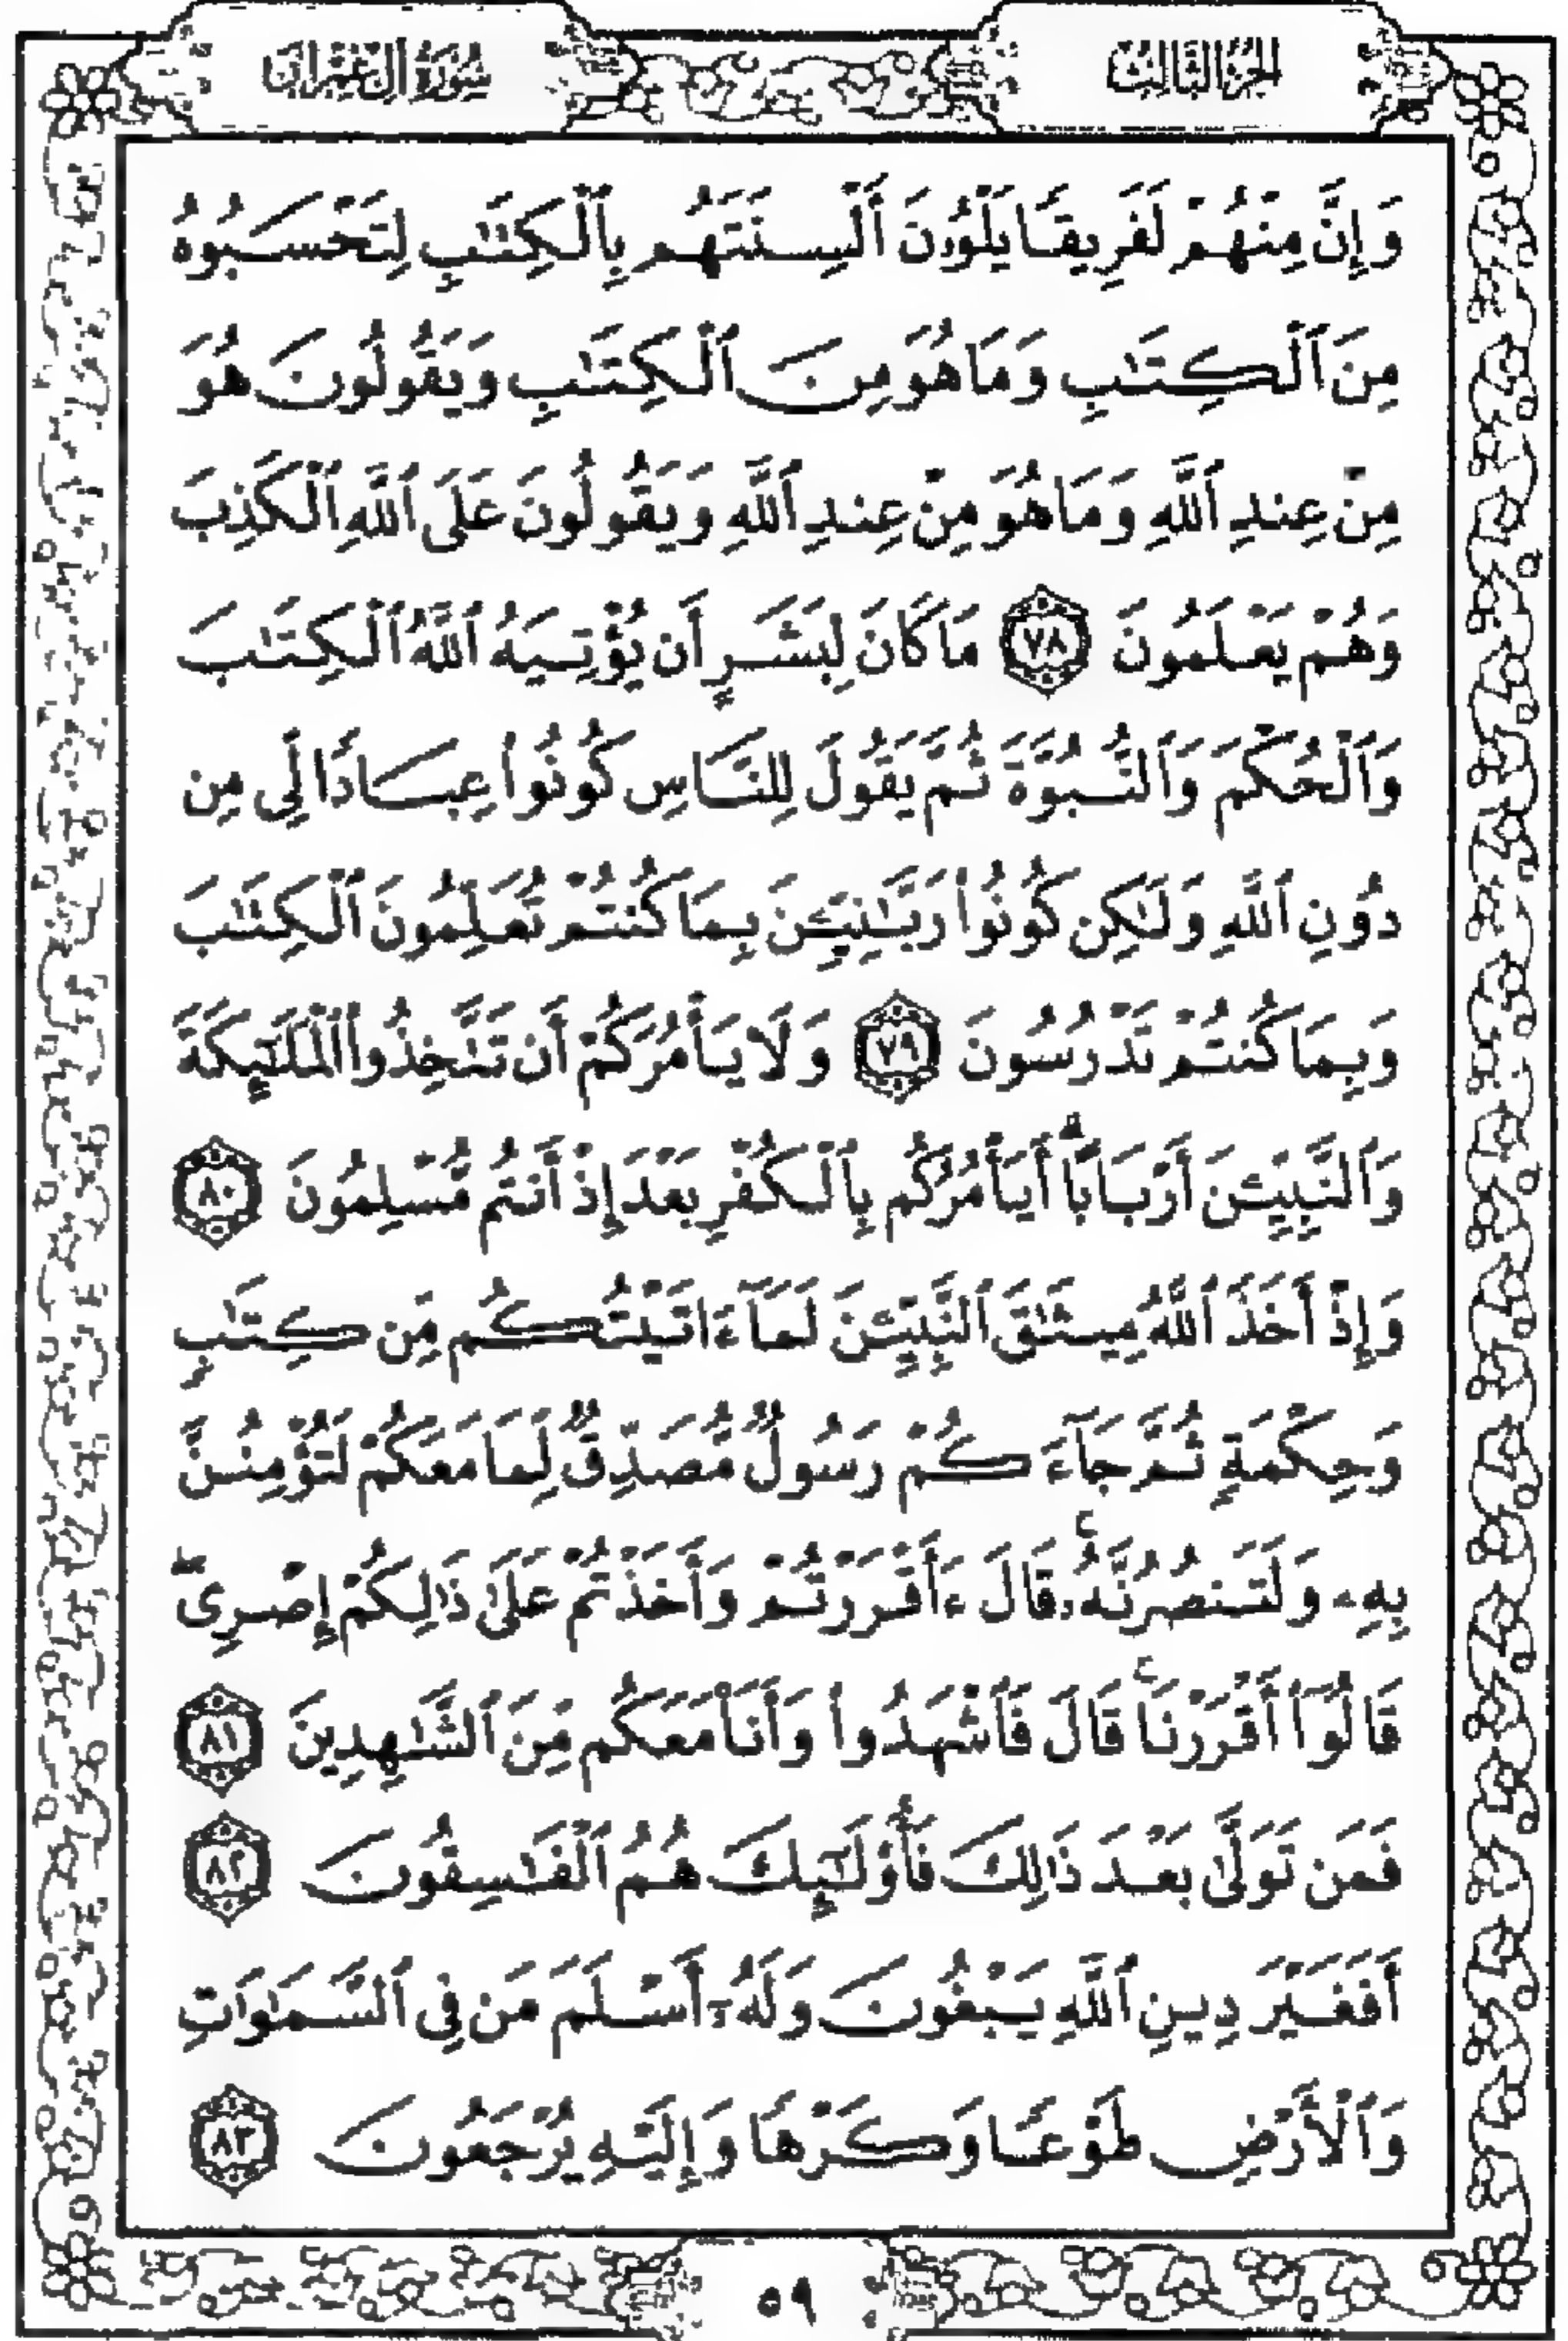 الجزء الثالث
سورة آل عمران
وَإِنَّ مِنْهُمْ لَفَرِيقًا يَلْوُۥنَ أَلْسِنَتَهُم بِٱلْكِتَٰبِ لِتَحْسَبُوهُ
مِنَ ٱلْكِتَٰبِ وَمَا هُوَ مِنَ ٱلْكِتَٰبِ وَيَقُولُونَ هُوَ
مِنْ عِندِ ٱللَّهِ وَمَا هُوَ مِنْ عِندِ ٱللَّهِ وَيَقُولُونَ عَلَى ٱللَّهِ ٱلْكَذِبَ
وَهُمْ يَعْلَمُونَ ٧٨ مَا كَانَ لِبَشَرٍ أَن يُؤْتِيَهُ ٱللَّهُ ٱلْكِتَٰبَ
وَٱلْحُكْمَ وَٱلنُّبُوَّةَ ثُمَّ يَقُولَ لِلنَّاسِ كُونُوا۟ عِبَادًا لِّى مِن
دُونِ ٱللَّهِ وَلَٰكِن كُونُوا۟ رَبَّٰنِيِّۦنَ بِمَا كُنتُمْ تُعَلِّمُونَ ٱلْكِتَٰبَ
وَبِمَا كُنتُمْ تَدْرُسُونَ ٧٩ وَلَا يَأْمُرَكُمْ أَن تَتَّخِذُوا۟ ٱلْمَلَٰٓئِكَةَ
وَٱلنَّبِيِّۦنَ أَرْبَابًا ۗ أَيَأْمُرُكُم بِٱلْكُفْرِ بَعْدَ إِذْ أَنتُم مُّسْلِمُونَ ٨٠
وَإِذْ أَخَذَ ٱللَّهُ مِيثَٰقَ ٱلنَّبِيِّۦنَ لَمَآ ءَاتَيْتُكُم مِّن كِتَٰبٍ
وَحِكْمَةٍ ثُمَّ جَآءَكُمْ رَسُولٌ مُّصَدِّقٌ لِّمَا مَعَكُمْ لَتُؤْمِنُنَّ
بِهِۦ وَلَتَنصُرُنَّهُۥ ۚ قَالَ ءَأَقْرَرْتُمْ وَأَخَذْتُمْ عَلَىٰ ذَٰلِكُمْ إِصْرِى ۖ
قَالُوٓا۟ أَقْرَرْنَا ۚ قَالَ فَٱشْهَدُوا۟ وَأَنَا۠ مَعَكُم مِّنَ ٱلشَّٰهِدِينَ ٨١
فَمَن تَوَلَّىٰ بَعْدَ ذَٰلِكَ فَأُو۟لَٰٓئِكَ هُمُ ٱلْفَٰسِقُونَ ٨٢
أَفَغَيْرَ دِينِ ٱللَّهِ يَبْغُونَ وَلَهُۥٓ أَسْلَمَ مَن فِى ٱلسَّمَٰوَٰتِ
وَٱلْأَرْضِ طَوْعًا وَكَرْهًا وَإِلَيْهِ يُرْجَعُونَ ٨٣
٥٩